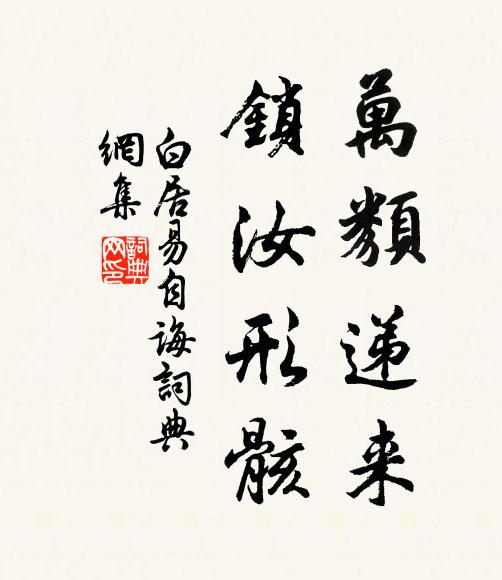 萬類遞来
鎖汝形骸
白居易自誨詞典
網集
詞典网印